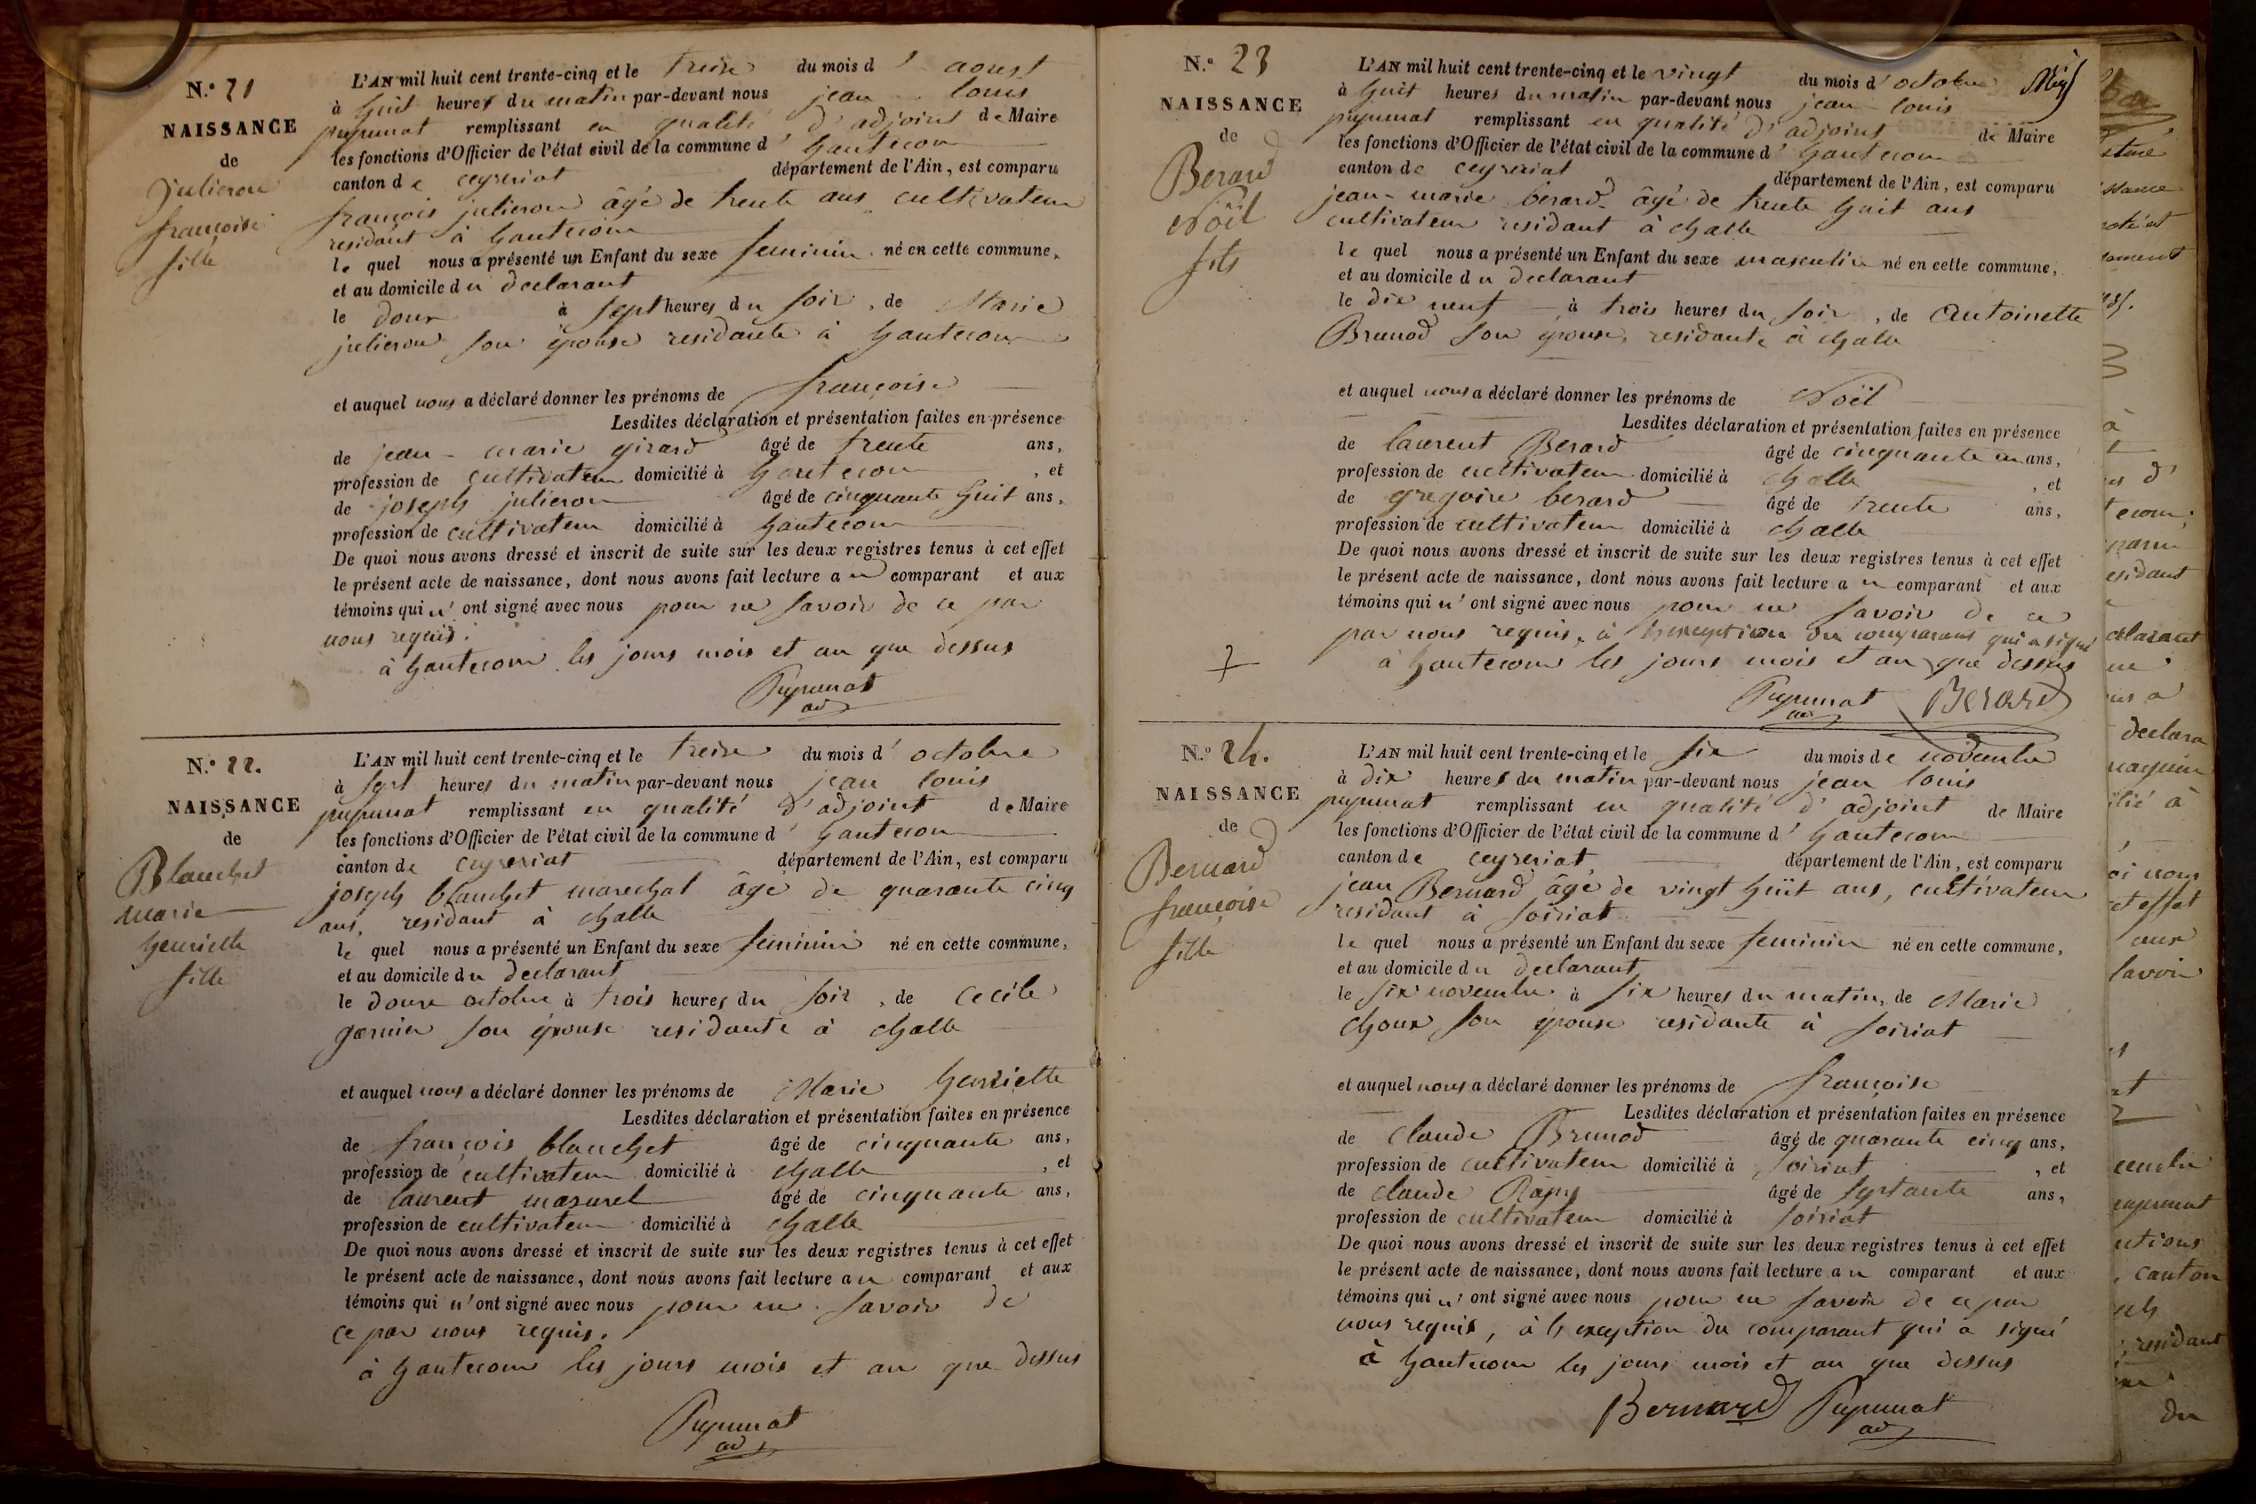 N.º 21
NAISSANCE
de
julieron
françoise
fille
L'AN mil huit cent trente-cinq et le treize du mois d' aoust
à huit heures du matin par-devant nous jean louis
pupunat remplissant en qualité d'adjoint de Maire
les fonctions d'Officier de l'état civil de la commune d' hautecour
canton de ceyzeriat département de l'Ain, est comparu
françois julieron âgé de trente ans cultivateur
residant à hautecour
le quel nous a présenté un Enfant du sexe feminin né en cette commune,
et au domicile du declarant
le douze à sept heures du soir, de Marie
julieron son épouse residante à hautecour
et auquel nous a déclaré donner les prénoms de françoise
Lesdites déclaration et présentation faites en présence
de jean-marie girard âgé de trente ans,
profession de cultivateur domicilié à hautecour, et
de joseph julieron âgé de cinquante huit ans,
profession de cultivateur domicilié à hautecour
De quoi nous avons dressé et inscrit de suite sur les deux registres tenus à cet effet
le présent acte de naissance, dont nous avons fait lecture au comparant et aux
témoins qui n'ont signé avec nous pour ne savoir de ce par
nous requis.
à hautecour les jours mois et an que dessus
Pupunat
ad
N.º 22.
NAISSANCE
de
Blanchet
marie
henriette
fille
L'AN mil huit cent trente-cinq et le treize du mois d' octobre
à sept heures du matin par-devant nous jean louis
pupunat remplissant en qualité d'adjoint de Maire
les fonctions d'Officier de l'état civil de la commune d' hautecour
canton de ceyzeriat département de l'Ain, est comparu
joseph blanchet marechal âgé de quarante cinq
ans, residant à challe
le quel nous a présenté un Enfant du sexe feminin né en cette commune,
et au domicile du declarant
le douze octobre à trois heures du soir, de cecile
garnier son épouse residante à challe
et auquel nous a déclaré donner les prénoms de Marie henriette
Lesdites déclaration et présentation faites en présence
de françois blanchet âgé de cinquante ans,
profession de cultivateur domicilié à challe, et
de laurent mazuret âgé de cinquante ans,
profession de cultivateur domicilié à challe
De quoi nous avons dressé et inscrit de suite sur les deux registres tenus à cet effet
le présent acte de naissance, dont nous avons fait lecture au comparant et aux
témoins qui n'ont signé avec nous pour ne savoir de
ce par nous requis.
à hautecour les jours mois et an que dessus
Pupunat
ad
N.º 23
NAISSANCE
de
Berard
Nöël
fils
L'AN mil huit cent trente-cinq et le vingt du mois d' octobre
à huit heures du matin par-devant nous jean louis
pupunat remplissant en qualité d'adjoint de Maire
les fonctions d'Officier de l'état civil de la commune d' hautecour
canton de ceyzeriat département de l'Ain, est comparu
jean-marie berard âgé de trente huit ans
cultivateur residant à challe
le quel nous a présenté un Enfant du sexe masculin né en cette commune,
et au domicile du declarant
le dix neuf à trois heures du soir, de Antoinette
Brunod son épouse, residante à challe
et auquel nous a déclaré donner les prénoms de Nöël
Lesdites déclaration et présentation faites en présence
de laurent Berard âgé de cinquante un ans,
profession de cultivateur domicilié à challe, et
de gregoire berard âgé de trente ans,
profession de cultivateur domicilié à challe
De quoi nous avons dressé et inscrit de suite sur les deux registres tenus à cet effet
le présent acte de naissance, dont nous avons fait lecture au comparant et aux
témoins qui n'ont signé avec nous pour ne savoir de ce
par nous requis, à l'exception du comparant qui a signé
à hautecour les jours mois et an que dessus
Pupunat Berard
ad
N.º 24.
NAISSANCE
de
Bernard
françoise
fille
L'AN mil huit cent trente-cinq et le six du mois de novembre
à dix heures du matin par-devant nous jean louis
pupunat remplissant en qualité d'adjoint de Maire
les fonctions d'Officier de l'état civil de la commune d' hautecour
canton de ceyzeriat département de l'Ain, est comparu
jean Bernard âgé de vingt huit ans, cultivateur
residant à soiriat
le quel nous a présenté un Enfant du sexe feminin né en cette commune,
et au domicile du declarant
le six novembre à six heures du matin, de Marie
choux son épouse residante à soiriat
et auquel nous a déclaré donner les prénoms de françoise
Lesdites déclaration et présentation faites en présence
de claude Brunod âgé de quarante cinq ans,
profession de cultivateur domicilié à soiriat, et
de claude Rapy âgé de septante ans,
profession de cultivateur domicilié à soiriat
De quoi nous avons dressé et inscrit de suite sur les deux registres tenus à cet effet
le présent acte de naissance, dont nous avons fait lecture au comparant et aux
témoins qui n'ont signé avec nous pour ne savoir de ce par
nous requis, à l'exception du comparant qui a signé
à hautecour les jours mois et an que dessus
Bernard Pupunat
ad